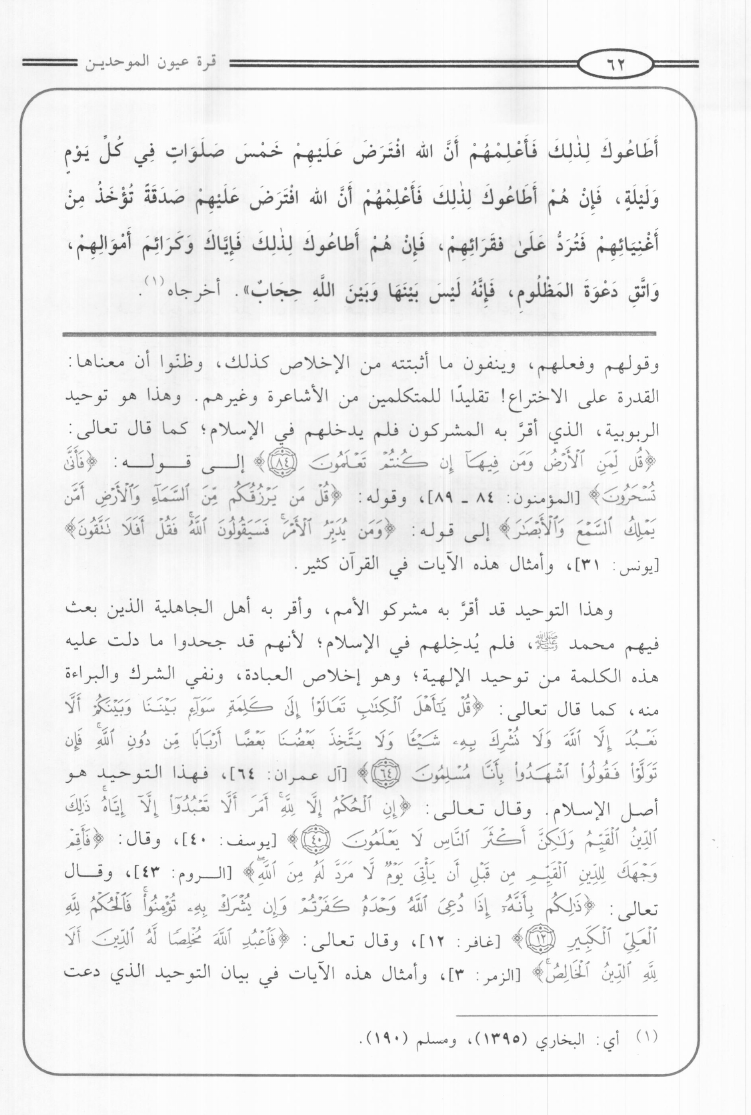 ٦٢ قرة عيون الموحدين
أَطَاعُوكَ لِذٰلِكَ فَأَعْلِمْهُمْ أَنَّ الله افْتَرَضَ عَلَيْهِمْ خَمْسَ صَلَوَاتٍ فِي كُلِّ يَوْمٍ
وَلَيْلَةٍ، فَإِنْ هُمْ أَطَاعُوكَ لِذٰلِكَ فَأَعْلِمْهُمْ أَنَّ الله افْتَرَضَ عَلَيْهِمْ صَدَقَةً تُؤْخَذُ مِنْ
أَغْنِيَائِهِمْ فَتُرَدُّ عَلَىٰ فقَرَائِهِمْ، فَإِنْ هُمْ أَطاعُوكَ لِذٰلِكَ فَإِيَّاكَ وَكَرَائِمَ أَمْوَالِهِمْ،
وَاتَّقِ دَعْوَةَ المَظْلُومِ، فَإِنَّهُ لَيْسَ بَيْنَهَا وَبَيْنَ اللَّهِ حِجَابٌ». أخرجاه(١).
وقولهم وفعلهم، وينفون ما أثبتته من الإخلاص كذلك، وظنّوا أن معناها:
القدرة على الاختراع! تقليدًا للمتكلمين من الأشاعرة وغيرهم. وهذا هو توحيد
الربوبية، الذي أقرَّ به المشركون فلم يدخلهم في الإسلام؛ كما قال تعالى:
﴿قُل لِّمَنِ ٱلۡأَرۡضُ وَمَن فِيهَآ إِن كُنتُمۡ تَعۡلَمُونَ ٨٤﴾ إلـى قـولــه: ﴿فَأَنَّىٰ
تُسۡحَرُونَ﴾ [المؤمنون: ٨٤ ـ ٨٩]، وقوله: ﴿قُلۡ مَن يَرۡزُقُكُم مِّنَ ٱلسَّمَآءِ وَٱلۡأَرۡضِ أَمَّن
يَمۡلِكُ ٱلسَّمۡعَ وَٱلۡأَبۡصَٰرَ﴾ إلى قوله: ﴿وَمَن يُدَبِّرُ ٱلۡأَمۡرَۚ فَسَيَقُولُونَ ٱللَّهُۚ فَقُلۡ أَفَلَا تَتَّقُونَ﴾
[يونس: ٣١]، وأمثال هذه الآيات في القرآن كثير.
وهذا التوحيد قد أقرَّ به مشركو الأمم، وأقر به أهل الجاهلية الذين بعث
فيهم محمد ﷺ، فلم يُدخِلهم في الإسلام؛ لأنهم قد جحدوا ما دلت عليه
هذه الكلمة من توحيد الإلهية؛ وهو إخلاص العبادة، ونفي الشرك والبراءة
منه، كما قال تعالى: ﴿قُلۡ يَٰٓأَهۡلَ ٱلۡكِتَٰبِ تَعَالَوۡاْ إِلَىٰ كَلِمَةٖ سَوَآءِۭ بَيۡنَنَا وَبَيۡنَكُمۡ أَلَّا
نَعۡبُدَ إِلَّا ٱللَّهَ وَلَا نُشۡرِكَ بِهِۦ شَيۡـٔٗا وَلَا يَتَّخِذَ بَعۡضُنَا بَعۡضًا أَرۡبَابٗا مِّن دُونِ ٱللَّهِۚ فَإِن
تَوَلَّوۡاْ فَقُولُواْ ٱشۡهَدُواْ بِأَنَّا مُسۡلِمُونَ ٦٤﴾ [آل عمران: ٦٤]، فهذا التوحيد هو
أصل الإسلام. وقال تعـالـى: ﴿إِنِ ٱلۡحُكۡمُ إِلَّا لِلَّهِ أَمَرَ أَلَّا تَعۡبُدُوٓاْ إِلَّآ إِيَّاهُۚ ذَٰلِكَ
ٱلدِّينُ ٱلۡقَيِّمُ وَلَٰكِنَّ أَكۡثَرَ ٱلنَّاسِ لَا يَعۡلَمُونَ ٤٠﴾ [يوسف: ٤٠]، وقال: ﴿فَأَقِمۡ
وَجۡهَكَ لِلدِّينِ ٱلۡقَيِّمِ مِن قَبۡلِ أَن يَأۡتِيَ يَوۡمٞ لَّا مَرَدَّ لَهُۥ مِنَ ٱللَّهِۖ﴾ [الـروم: ٤٣]، وقــال
تعالى: ﴿ذَٰلِكُم بِأَنَّهُۥٓ إِذَا دُعِيَ ٱللَّهُ وَحۡدَهُۥ كَفَرۡتُمۡ وَإِن يُشۡرَكۡ بِهِۦ تُؤۡمِنُواْۚ فَٱلۡحُكۡمُ لِلَّهِ
ٱلۡعَلِيِّ ٱلۡكَبِيرِ ١٢﴾ [غافر: ١٢]، وقال تعالى: ﴿فَٱعۡبُدِ ٱللَّهَ مُخۡلِصٗا لَّهُ ٱلدِّينَ أَلَا
لِلَّهِ ٱلدِّينُ ٱلۡخَالِصُۚ﴾ [الزمر: ٣]، وأمثال هذه الآيات في بيان التوحيد الذي دعت
(١) أي: البخاري (١٣٩٥)، ومسلم (١٩٠).